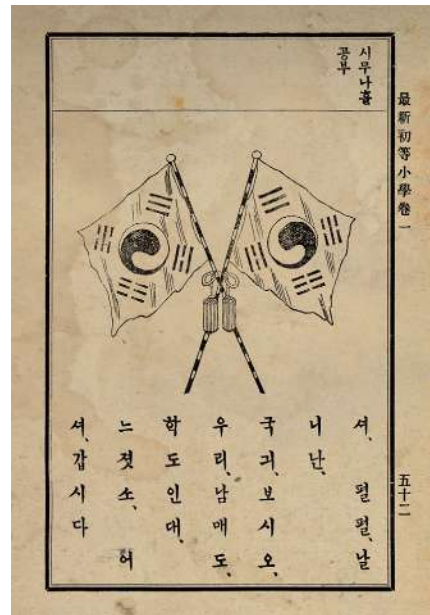 最新初等小學卷一
五十二
시무나흘
공부
셔、펄펄、날
니난、
국긔、보시오、
우리、남매도、
학도인대、
느젓소、어
셔、갑시다